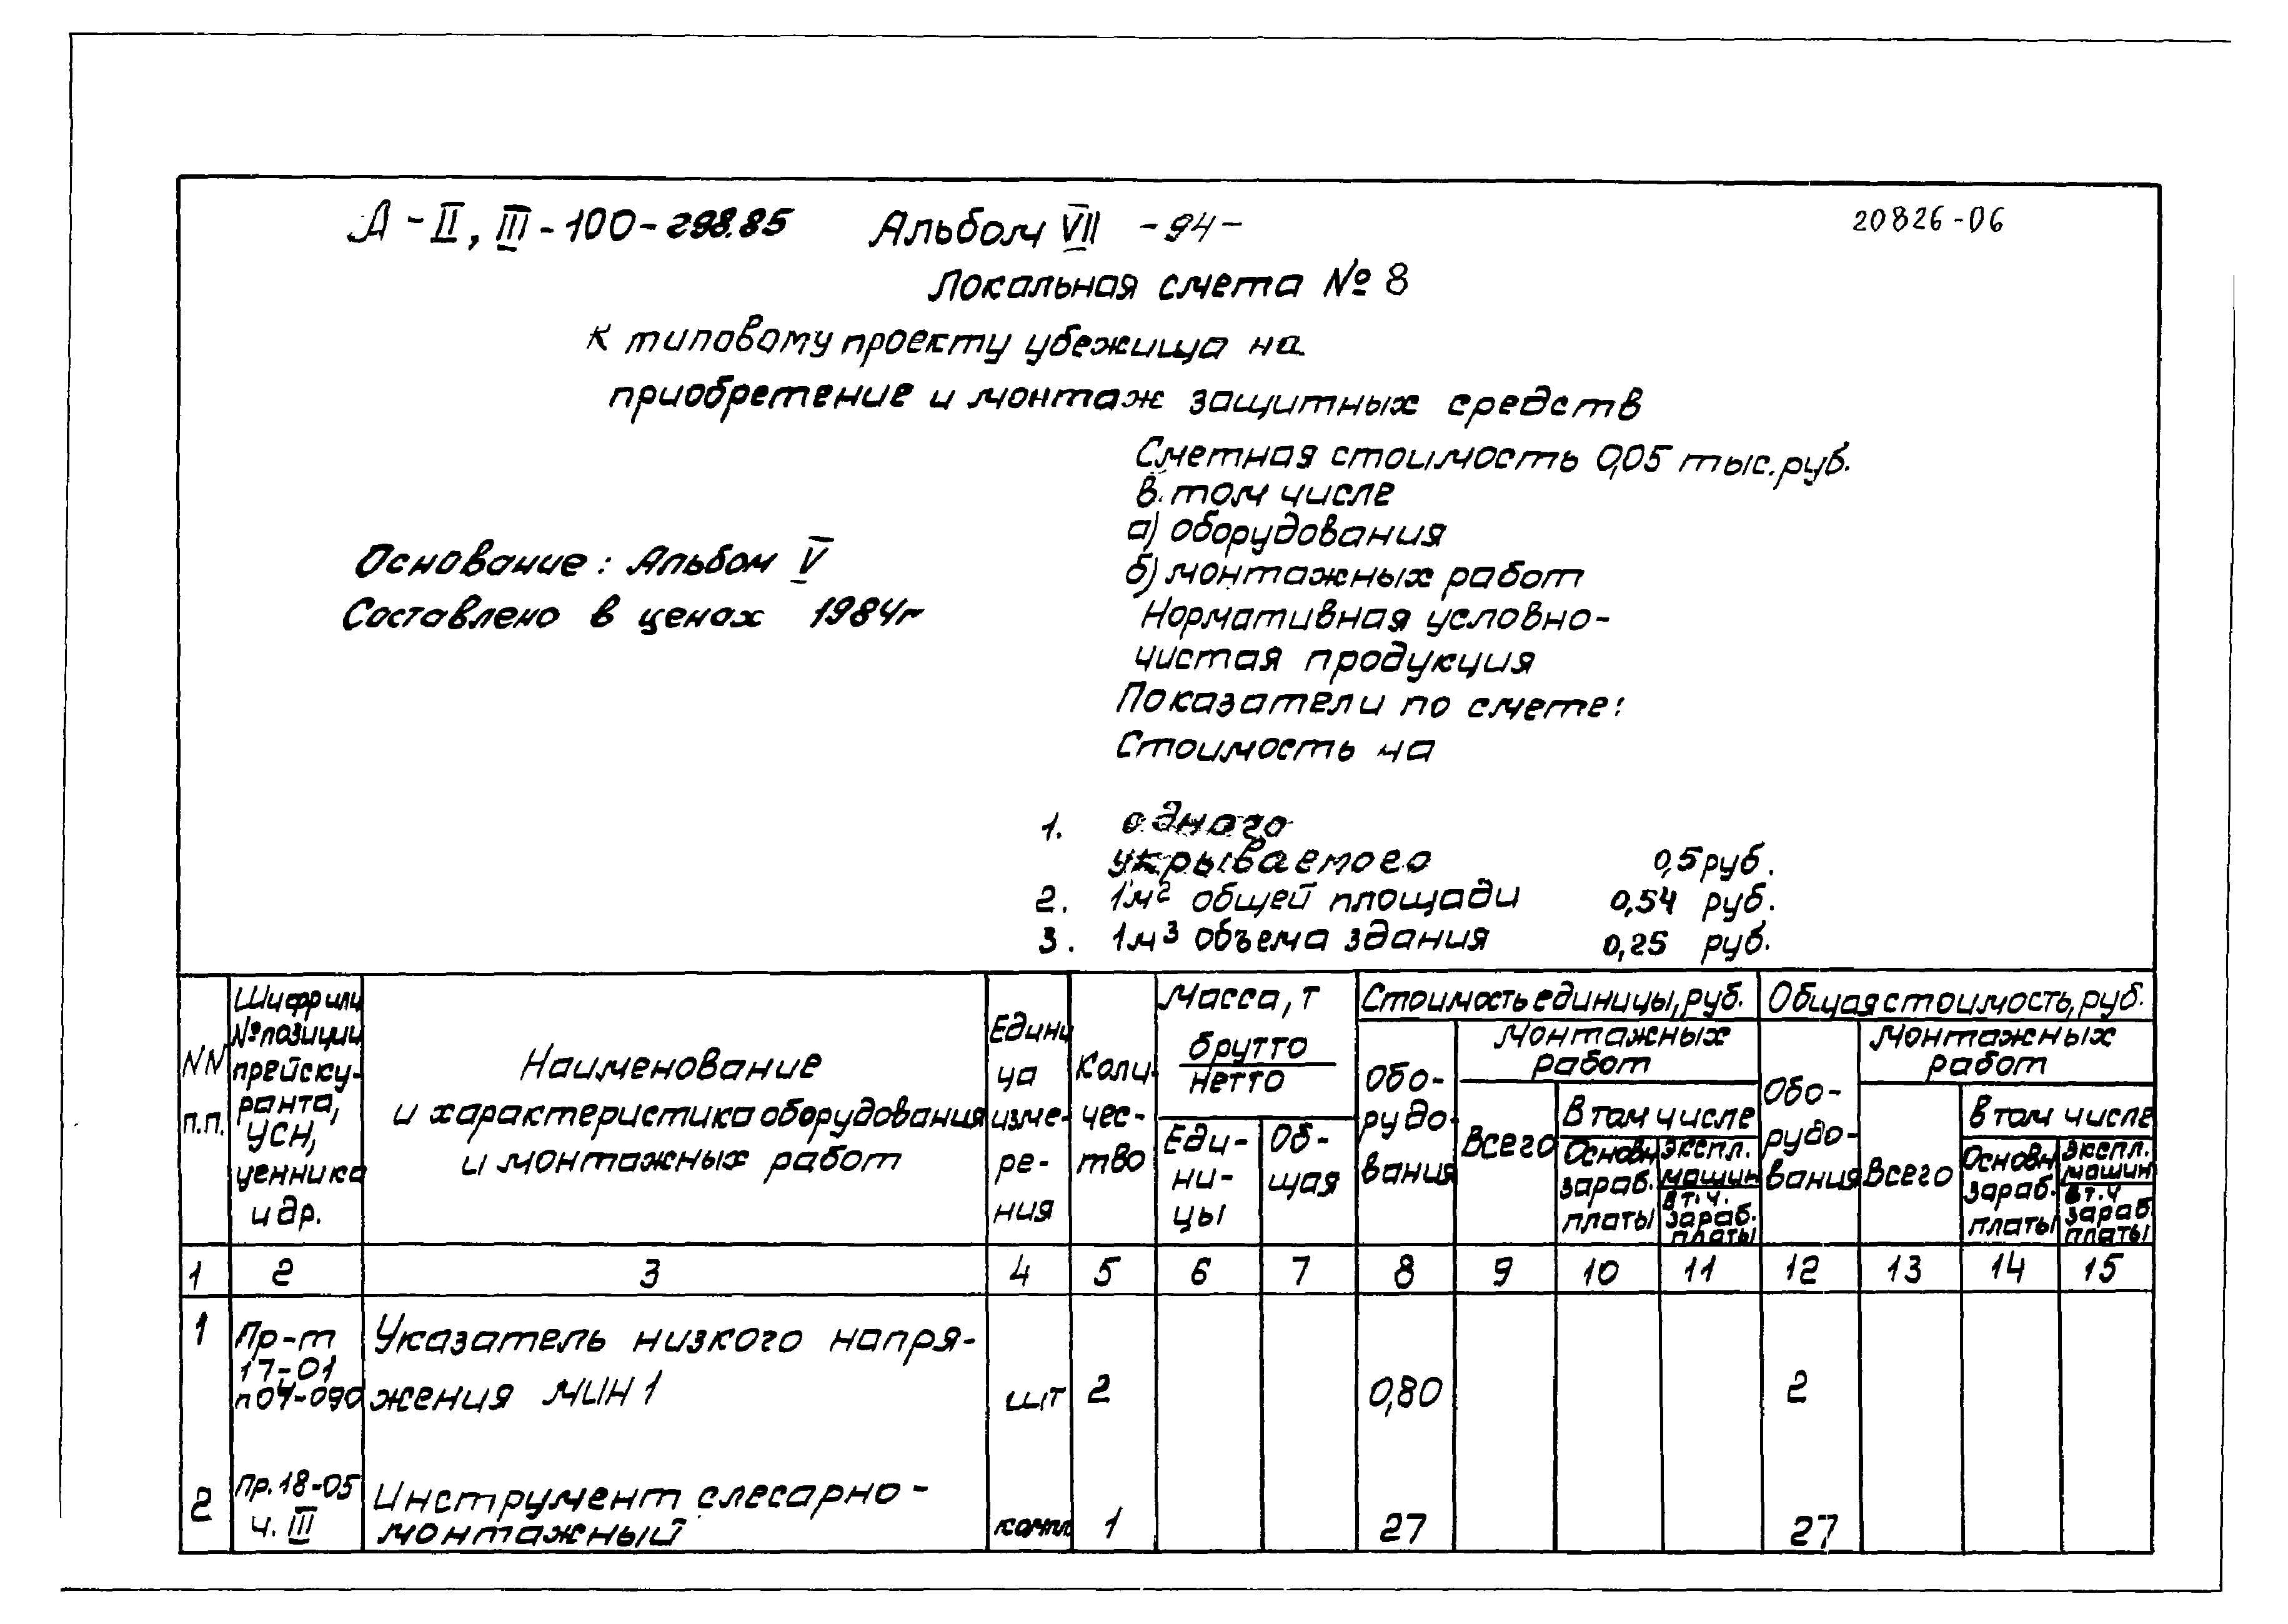 А-II, III-100-298.85 Альбом VII -94- 20826-06
Локальная смета № 8
К типовому проекту убежища на
приобретение и монтаж защитных средств
Сметная стоимость 0,05 тыс.руб.
в том числе
а) оборудования
Основание: Альбом V
б) монтажных работ
Составлено в ценах 1984г
Нормативная условно-
чистая продукция
Показатели по смете:
Стоимость на
1. одного
укрываемого 0,5 руб.
2. 1м² общей площади 0,54 руб.
3. 1м³ объема здания 0,25 руб.
NN
п.п.
Шифр или
№ позиции
прейску-
ранта,
УСН,
ценника
и др.
Наименование
и характеристика оборудования
и монтажных работ
Едини
ца
изме-
ре-
ния
Коли-
чес-
тво
Масса, т
брутто
нетто
Еди-
ни-
цы
Об-
щая
Стоимость единицы, руб.
Обо-
рудо-
вания
Монтажных
работ
Всего
В том числе
Основн
зараб.
платы
Экспл.
машин
в т.ч.
зараб.
платы
Общая стоимость, руб.
Обо-
рудо-
вания
Монтажных
работ
Всего
В том числе
Основн
зараб.
платы
Экспл.
машин
в т.ч
зараб
платы
1 2 3 4 5 6 7 8 9 10 11 12 13 14 15
1 Пр-т Указатель низкого напря-
17-01
п04-090 жения МИН 1 шт 2 0,80 2
Пр. 18-05 Инструмент слесарно-
2 ч. III монтажный компл 1 27 27